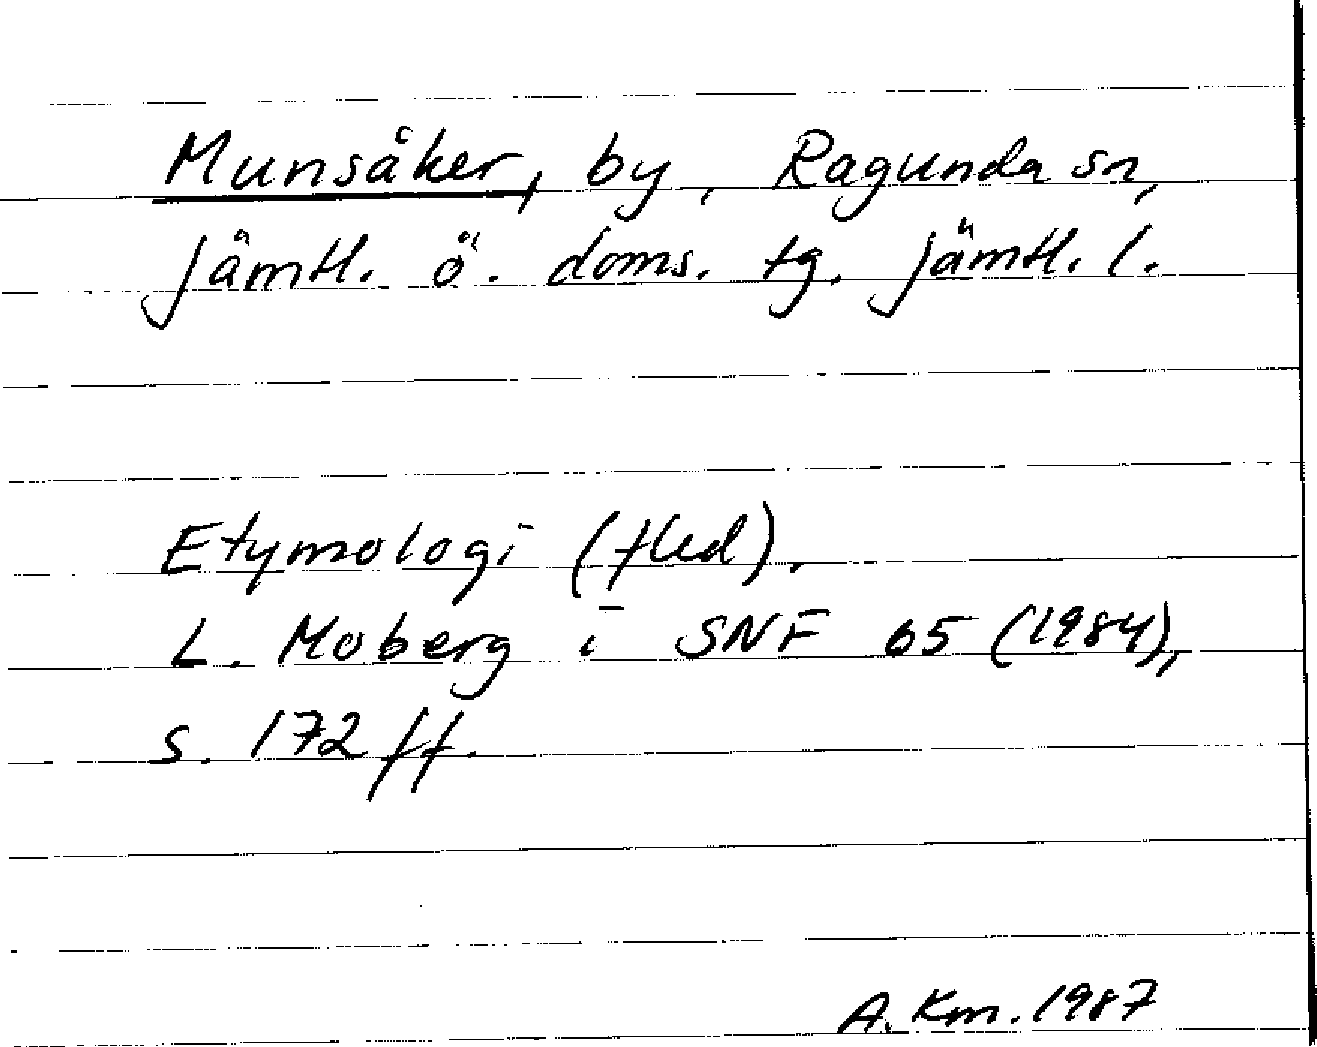 Munsåker, by, Ragunda sn,
Jämtl. ö. doms. tg. Jämtl. l.
Etymologi (fled).
L. Moberg i SNF 65 (1984),
s. 172 ff.
A. Km. 1987